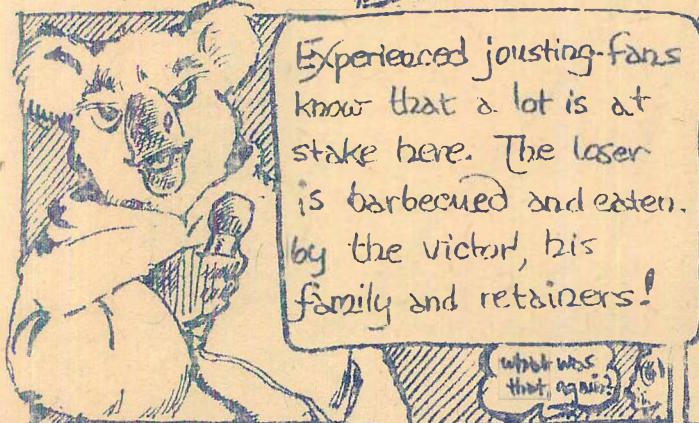 Experienced jousting-fans
know that a lot is at
stake here. The loser
is barbecued and eaten.
by the victor, his
family and retainers!
what was
that, again?